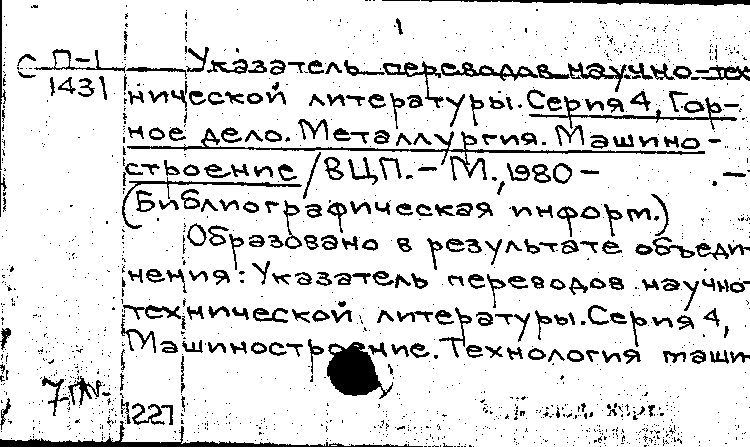 1
С П-1
1431
Указатель переводов научно-тех
нической литературы. Серия 4, Гор-
ное дело. Металлургия. Машино-
строение / ВЦП. - М., 1980 -      . -
(Библиографическая информ.)
Образовано в результате объеди-
нения: Указатель переводов научно-
технической литературы. Серия 4,
Машиностроение. Технология машин
1227